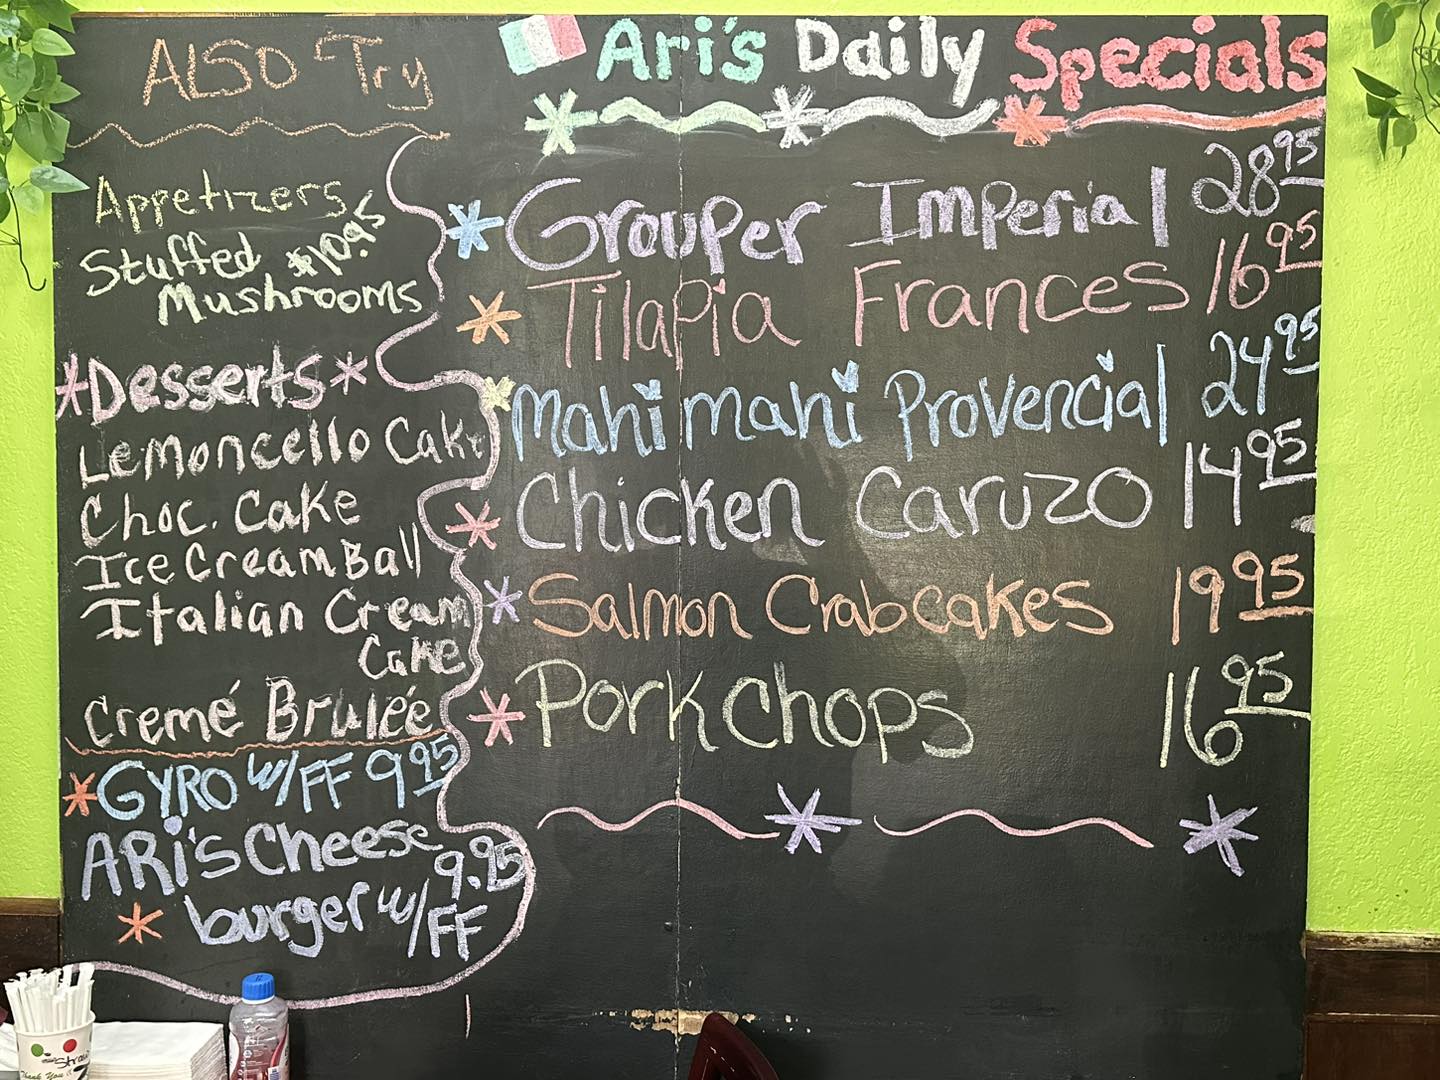 ALSO Try
Appetizers
Stuffed $10.95
Mushrooms
*Desserts*
Lemoncello Cake
Choc. Cake
Ice Cream Ball
Italian Cream
Cake
Cremé Brulée
*GYRO w/FF 9 95
ARi's Cheese
9.95
* burger w/FF
Ari's Daily Specials
* Grouper Imperial 28 95
* Tilapia Frances 16 95
* mahi mahi Provencial 24 95
* Chicken Caruzo 14 95
* Salmon Crabcakes 19 95
* Pork Chops 16 95
Thank You